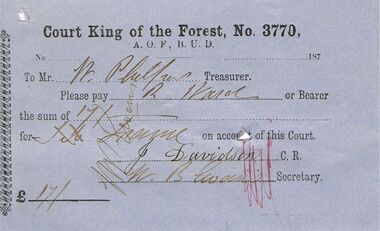 Court King of the Forest, No. 3770,
A. O. F., B. U. D.
No 187
To Mr. W. Treasurer.
Please pay R. Ward or Bearer
the sum of 17/-
for on account of this Court.
J Davidson C. R.
W. B. Secretary.
£ 17/